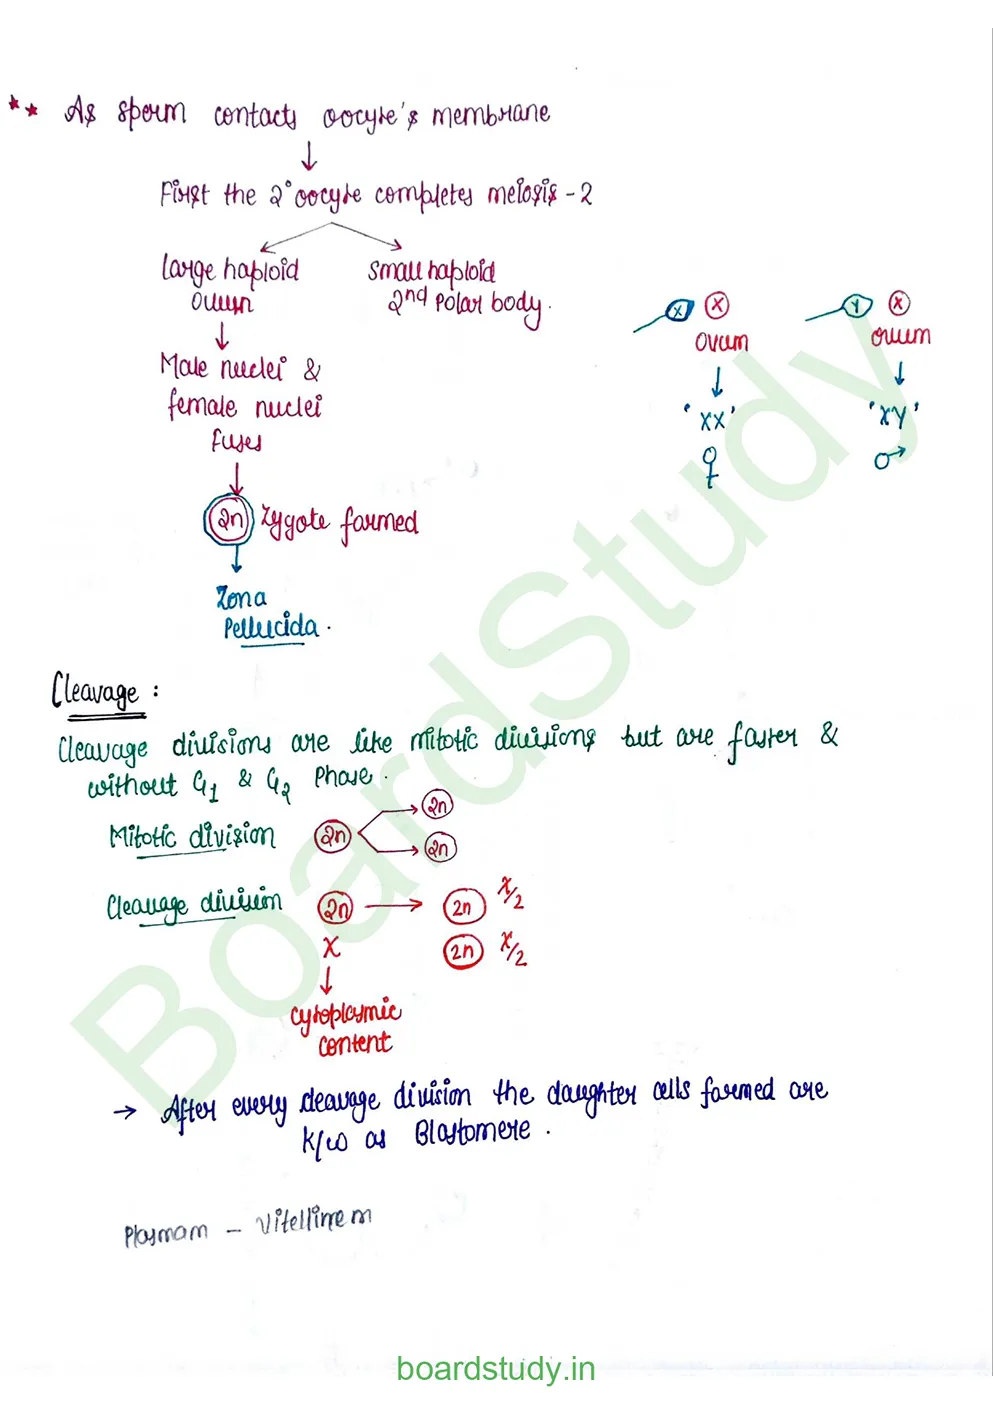 ** As sperm contacts oocyte's membrane
↓
First the 2° oocyte completes meiosis - 2
large haploid
ovum
small haploid
2nd polar body.
↓
Male nuclei &
female nuclei
fuses
↓
2n Zygote formed
↓
Zona
Pellucida.
X X
ovum
↓
'XX'
♀
Y X
ovum
↓
'XY'
♂
Cleavage :
Cleavage divisions are like mitotic divisions but are faster &
without G1 & G2 Phase.
Mitotic division 2n 2n
2n
Cleavage division 2n → 2n x/2
x 2n x/2
↓
Cytoplasmic
content
→ After every cleavage division the daughter cells formed are
k/w as Blastomere.
Plasmam - Vitelline m
BoardStudy
boardstudy.in